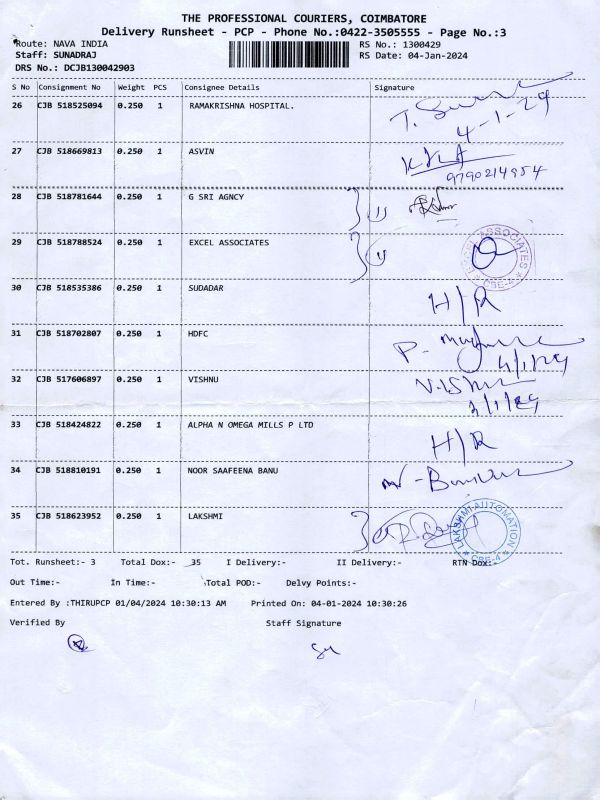 THE PROFESSIONAL COURIERS, COIMBATORE
Delivery Runsheet - PCP - Phone No.:0422-3505555 - Page No.:3
Route: NAVA INDIA RS No.: 1300429
Staff: SUNADRAJ RS Date: 04-Jan-2024
DRS No.: DCJB130042903
S No Consignment No Weight PCS Consignee Details Signature
26 CJB 518525094 0.250 1 RAMAKRISHNA HOSPITAL.
27 CJB 518669813 0.250 1 ASVIN
9790214954
28 CJB 518781644 0.250 1 G SRI AGNCY
29 CJB 518788524 0.250 1 EXCEL ASSOCIATES
30 CJB 518535386 0.250 1 SUDADAR H/R
31 CJB 518702807 0.250 1 HDFC
32 CJB 517606897 0.250 1 VISHNU
33 CJB 518424822 0.250 1 ALPHA N OMEGA MILLS P LTD H/R
34 CJB 518810191 0.250 1 NOOR SAAFEENA BANU
35 CJB 518623952 0.250 1 LAKSHMI LAKSHMI AUTOMATION CBE-4
Tot. Runsheet:- 3 Total Dox:- 35 I Delivery:- II Delivery:- RTN Dox:-
Out Time:- In Time:- Total POD:- Delvy Points:-
Entered By :THIRUPCP 01/04/2024 10:30:13 AM Printed On: 04-01-2024 10:30:26
Verified By Staff Signature